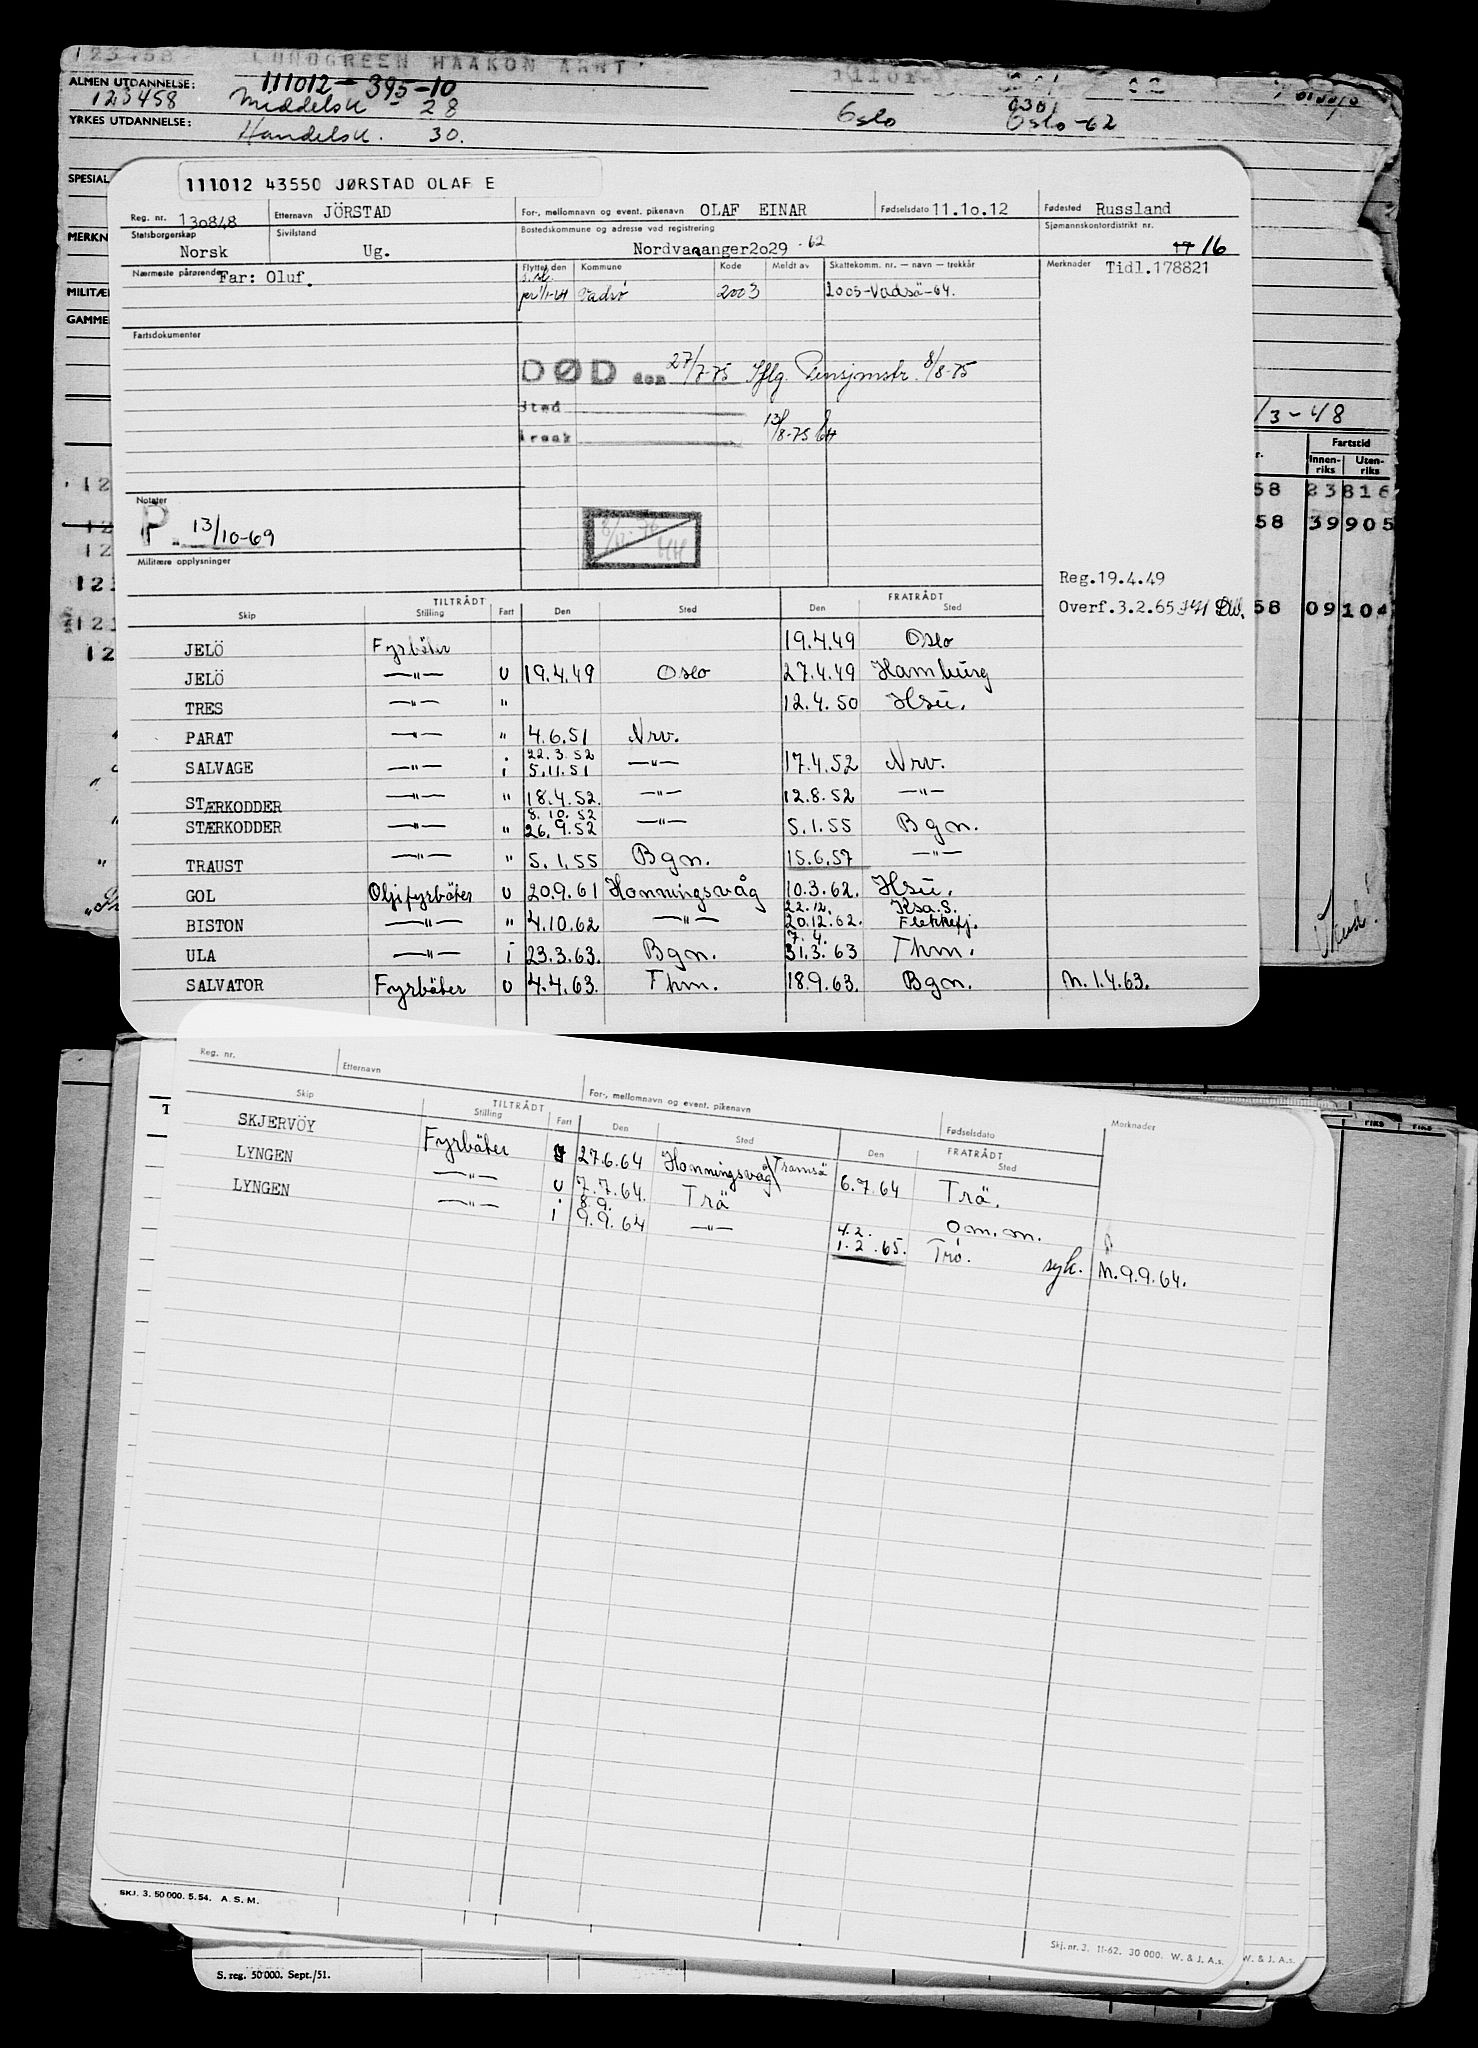 123458 LUNDGREEN HAAKON ARNT
ALMEN UTDANNELSE: 111012 - 395-10
123458 Middelsk 28 Oslo 0301 Oslo -62
YRKES UTDANNELSE: Handelsk. 30.
SPESIAL
MERKN
MILITÆ
GAMME
111012 43550 JØRSTAD OLAF E
Reg. nr. 130848 Etternavn JÖRSTAD For-, mellomnavn og event. pikenavn OLAF EINAR Fødselsdato 11.1o.12 Fødested Russland
Statsborgerskap Norsk Sivilstand Ug. Bostedskommune og adresse ved registrering Nordvaranger2o29 -62 Sjømannskontordistrikt nr. 17 16
Nærmeste pårørende Far: Oluf. Flyttet den Kommune Kode Meldt av Skattekomm. nr. — navn — trekkår Merknader Tidl.178821
per 1/1-64 Vadsø 2003 2003-Vadsö-64.
Fartsdokumenter
DØD den 27/7-75 Iflg. Pensjonstr. 8/8-75
Sted
Årsak 13/8-75
/3 - 48
Fartstid
Innen-riks Uten-riks
58 23 816
58 39 905
58 09 104
Notater
P. 13/10-69
Militære opplysninger
Reg.19.4.49
Overf.3.2.65
TILTRÅDT FRATRÅDT
Skip Stilling Fart Den Sted Den Sted
JELÖ Fyrbøter 19.4.49 Oslo
JELÖ —"— u 19.4.49 Oslo 27.4.49 Hamburg
TRES —"— " 12.4.50 Hsu.
PARAT —"— " 4.6.51 Nrv.
22.3.52
SALVAGE —"— i 5.11.51 —"— 17.4.52 Nrv.
STÆRKODDER —"— " 18.4.52. —"— 12.8.52 —"—
8.10.52
STÆRKODDER —"— " 26.9.52 —"— 5.1.55 Bgn.
TRAUST —"— " 5.1.55 Bgn. 15.6.57 —"—
GOL Oljefyrbøter u 20.9.61 Honningsvåg 10.3.62. Hsu.
22.12. Ksa.S.
BISTON —"— " 4.10.62 —"— 20.12.62. Flekkefj.
7.4.
ULA —"— i 23.3.63. Bgn. 31.3.63 Thm.
SALVATOR Fyrbøter u 4.4.63. Thm. 18.9.63. Bgn. M.1.4.63.
Reg. nr. Etternavn For-, mellomnavn og event. pikenavn Fødselsdato Merknader
TILTRÅDT FRATRÅDT
Skip Stilling Fart Den Sted Den Sted
SKJERVÖY Fyrbøter 27.6.64 Honningsvåg Tromsö 6.7.64 Trö.
LYNGEN —"— u 7.7.64. Trö O.m.m.
8.9. 4.2.
LYNGEN —"— i 9.9.64 —"— 1.2.65. Trö. syk. M.9.9.64.
RIKS RIKS
SKJ. 3. 50 000. 5.54. A. S. M.
Skj. nr. 3. 11-62. 30 000. W. & J. A.s. W. & J. A.s.
S. reg. 50 000. Sept./51.